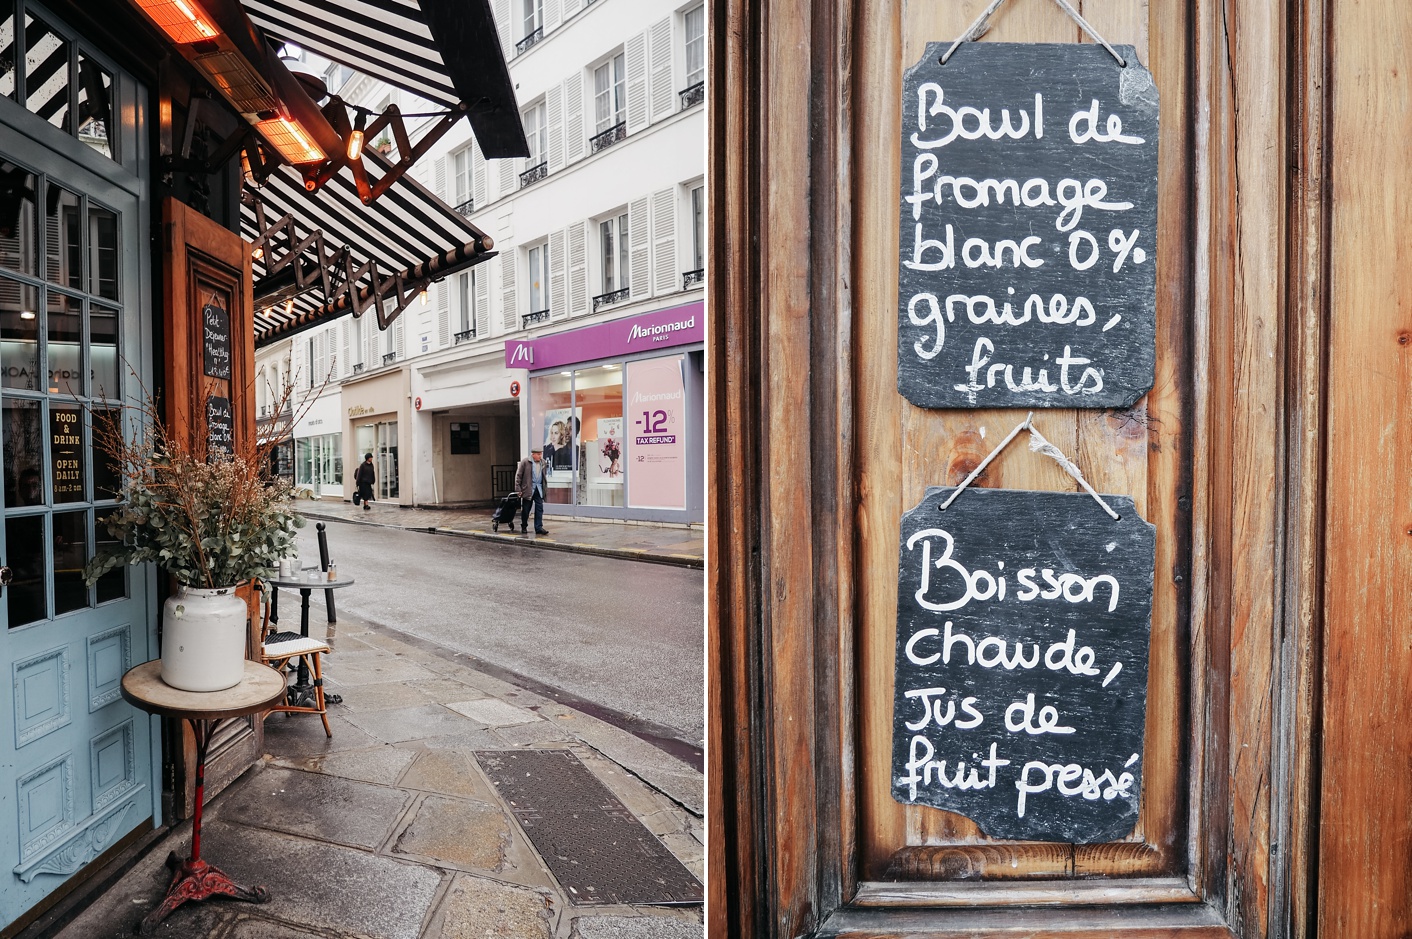 Petit
Déjeuner
"Healthy
Bowl de
fromage
blanc 0%
FOOD
&
DRINK
OPEN
DAILY
8 am-2 am
M
Marionnaud
PARIS
Marionnaud
-12%
TAX REFUND*
-12
Bowl de
fromage
blanc 0%
graines,
fruits
Boisson
chaude,
Jus de
fruit pressé